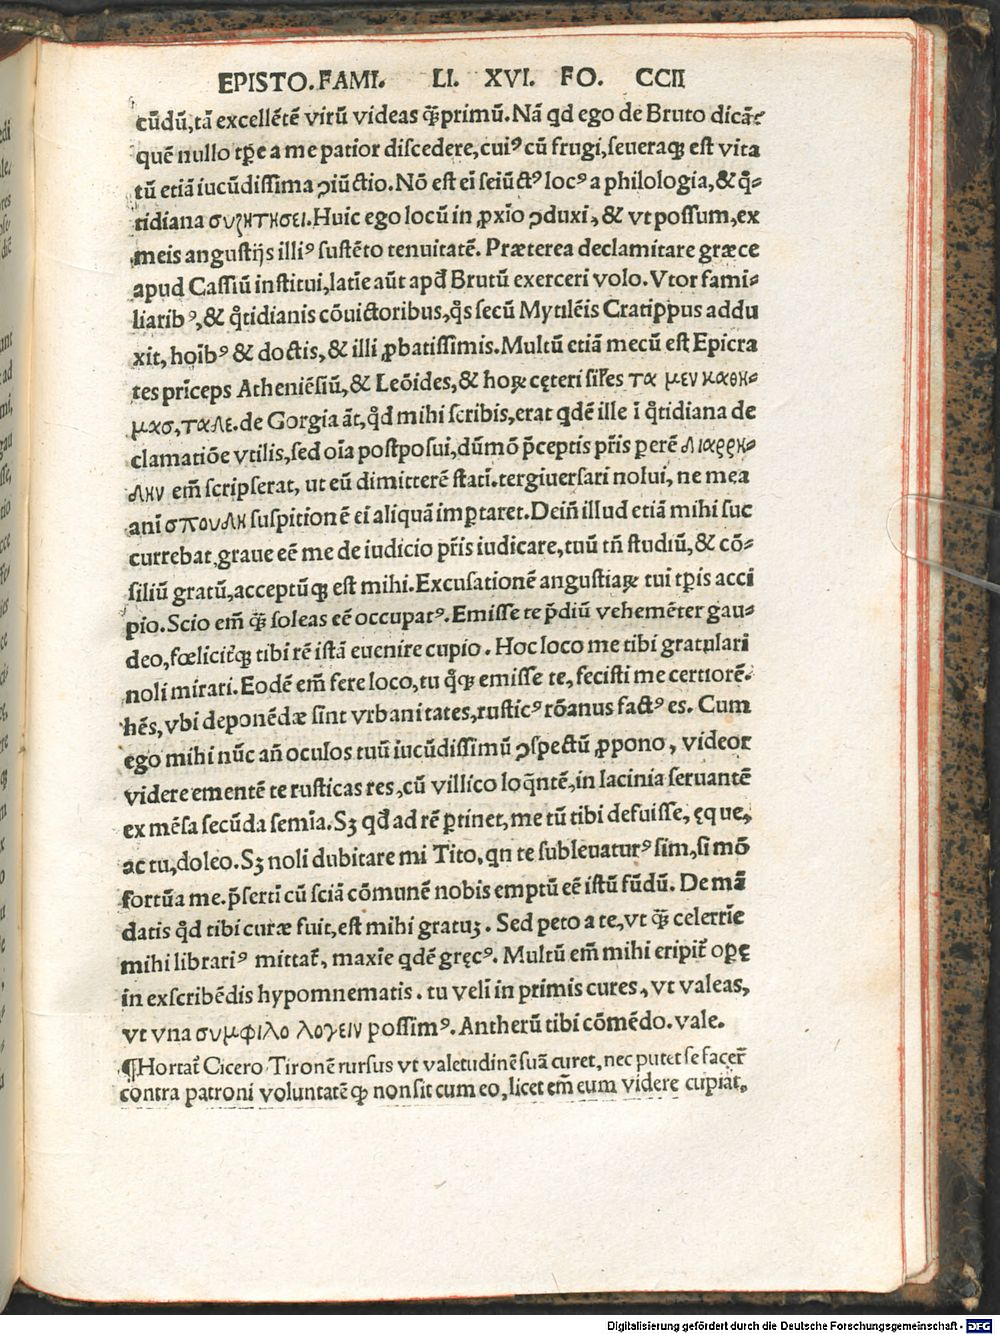 EPISTO.FAMI. LI. XVI. FO. CCII
cūdū,tā excellētē virū videas q̄ꝫprimū.Nā qd ego de Bruto dicā?
quē nullo tp̄e a me patior discedere,cuiꝰ cū frugi,seueraqꝫ est vita
tū etiā iucūdissima ↄiūctio.Nō est ei seiūctꝰ locꝰ a philologia,& q̊-
tidiana συζητησει.Huic ego locū in ꝓxīo ↄduxi, & vt possum,ex
meis angustijs illiꝰ sustēto tenuitatē. Præterea declamitare græce
apud Cassiū institui,latīe aūt apđ Brutū exerceri volo.Vtor fami-
liaribꝰ,& q̊tidianis cōuictoribus,q̊s secū Mytilēis Cratippus addu
xit, hoībꝰ & doctis,& illi ꝓbatissimis.Multū etiā mecū est Epicra
tes prīceps Atheniēsiū,& Leōides,& hoꝝ cęteri sil̄es τα μεν καθη-
μας,ταδε.de Gorgia āt,q̊d mihi scribis,erat qdē ille ī q̊tidiana de
clamatiōe vtilis,sed oīa postposui,dūmō p̄ceptis pr̄is ꝑerē διαρρη-
δην em̄ scripserat, ut eū dimitterē stati.tergiuersari nolui, ne mea
ani σπουδη suspitionē ei aliquā imꝑtaret.Dein̄ illud etiā mihi suc
currebat,graue eē me de iudicio pr̄is iudicare,tuū tn̄ studiū,& cō-
siliū gratū,acceptūqꝫ est mihi.Excusationē angustiaꝝ tui tp̄is acci
pio.Scio em̄ q̄ꝫ soleas eē occupatꝰ.Emisse te p̄diū vehemēter gau-
deo,fœlicit̄qꝫ tibi rē istā euenire cupio. Hoc loco me tibi gratulari
noli mirari.Eodē em̄ fere loco,tu q̊qꝫ emisse te, fecisti me certiorē.
hēs,vbi deponēdæ sint vrbanitates,rusticꝰ rōanus factꝰ es. Cum
ego mihi nūc an̄ oculos tuū iucūdissimū ↄspectū ꝓpono, videor
videre ementē te rusticas res,cū villico loq̄ntē,in lacinia seruantē
ex mēsa secūda semīa.Sꝫ qđ ad rē ꝑtinet,me tū tibi defuisse, ęque,
ac tu,doleo.Sꝫ noli dubitare mi Tito,qn te subleuaturꝰ sim,si mō
fortūa me.p̄serti cū sciā cōmunē nobis emptū eē istū fūdū. De mā
datis q̊d tibi curæ fuit,est mihi gratuꝫ. Sed peto a te,vt q̄ꝫ celerrīe
mihi librariꝰ mittat̄, maxīe qdē gręcꝰ. Multū em̄ mihi eripit̄ opę
in exscribēdis hypomnematis. tu veli in primis cures, vt valeas,
vt vna συμφιλο λογειν possimꝰ. Antherū tibi cōmēdo. vale.
¶Hortat̄ Cicero Tironē rursus vt valetudinē suā curet,nec putet se facer̄
contra patroni voluntatē qꝫ non sit cum eo, licet em̄ eum videre cupiat,
Digitalisierung gefördert durch die Deutsche Forschungsgemeinschaft - DFG